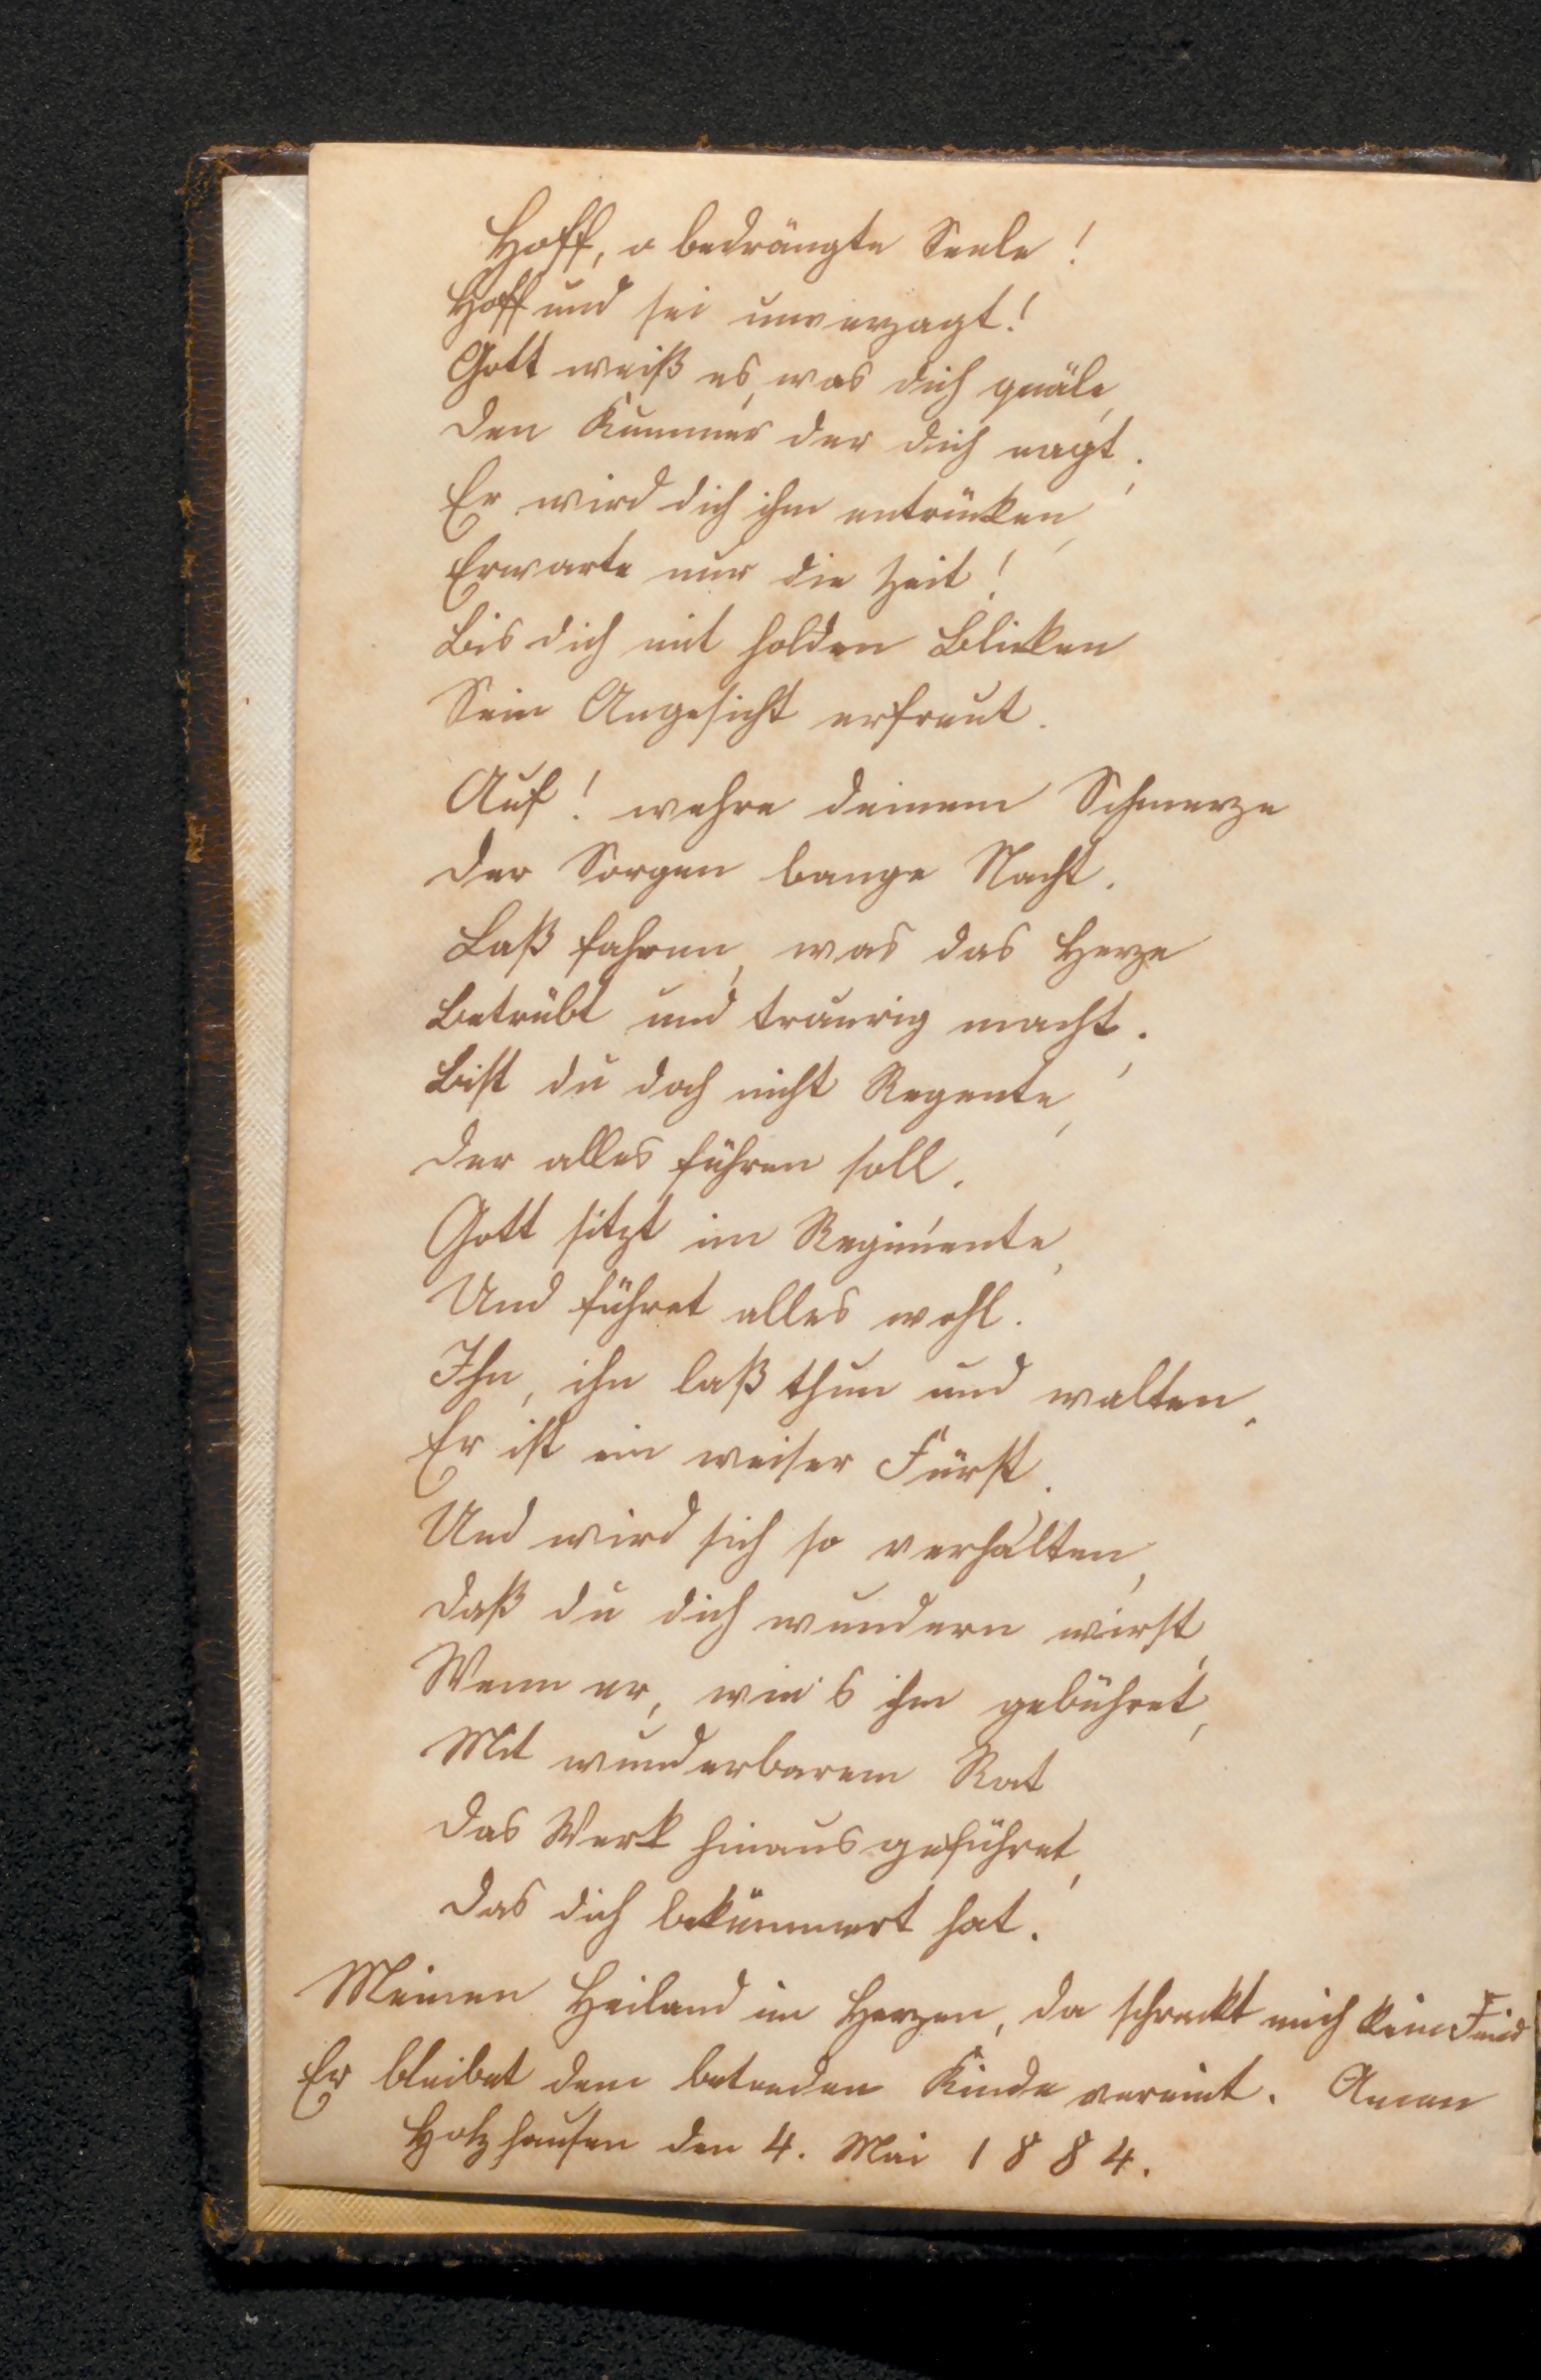 Hoff, o bedrängte Seele!
Hoff und sei unverzagt!
Gott weiß es, was dich quäle,
Den Kummer der dich nagt.
Er wird dich ihm entrücken,
Erwarte nur die Zeit!
Bis dich mit holden Blicken
Sein Angesicht erfreut.
Auf! wehre deinem Schmerze
Der Sorgen bange Nacht.
Laß fahren, was das Herze
Betrübt und traurig macht.
Bist du doch nicht Regente,
Der alles führen soll.
Gott sitzt im Regimente,
Und führet alles wohl.
Ihn, ihn laß thun und walten.
Er ist ein weiser Fürst.
Und wird sich so verhalten,
Daß du dich wundern wirst,
Wenn er, wie's ihm gebühret,
Mit wunderbarem Rat
Das Werk hinausgeführet,
Das dich bekümmert hat.
Meinen Heiland im Herzen, da schreckt mich kein Feind
Er bleibet dem betenden Kinde vereint. Amen
Holzhausen den 4. Mai 1884.